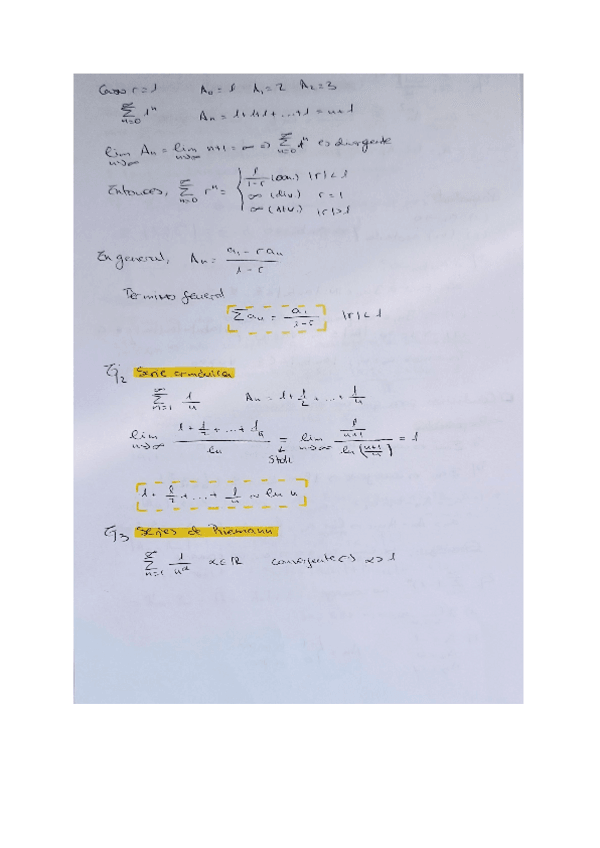 Caso r=1 A₀=1 A₁=2 A₂=3
∞∑n=0 1ⁿ Aₙ = 1+1+1+...+1 = n+1
lim n→∞ Aₙ = lim n→∞ n+1 = ∞ ⇒ ∞∑n=0 1ⁿ es divergente
Entonces, ∞∑n=0 rⁿ = { 1/(1-r) (con.) |r|<1
∞ (div.) r=1
∞ (div.) |r|>1
En general, Aₙ = (a₁ - r aₙ)/(1-r)
Término general
∑aₙ = a₁/(1-r) |r|<1
Ej₂ Serie armónica
∞∑n=1 1/n Aₙ = 1+1/2+...+1/n
lim n→∞ (1+1/2+...+1/n)/ln = lim n→∞ (1/(n+1))/(ln((n+1)/n)) = 1
Stolz
1+1/2+...+1/n ~ ln n
Ej₃ Series de Riemann
∞∑n=1 1/n^α α∈ℝ convergente ⇔ α>1